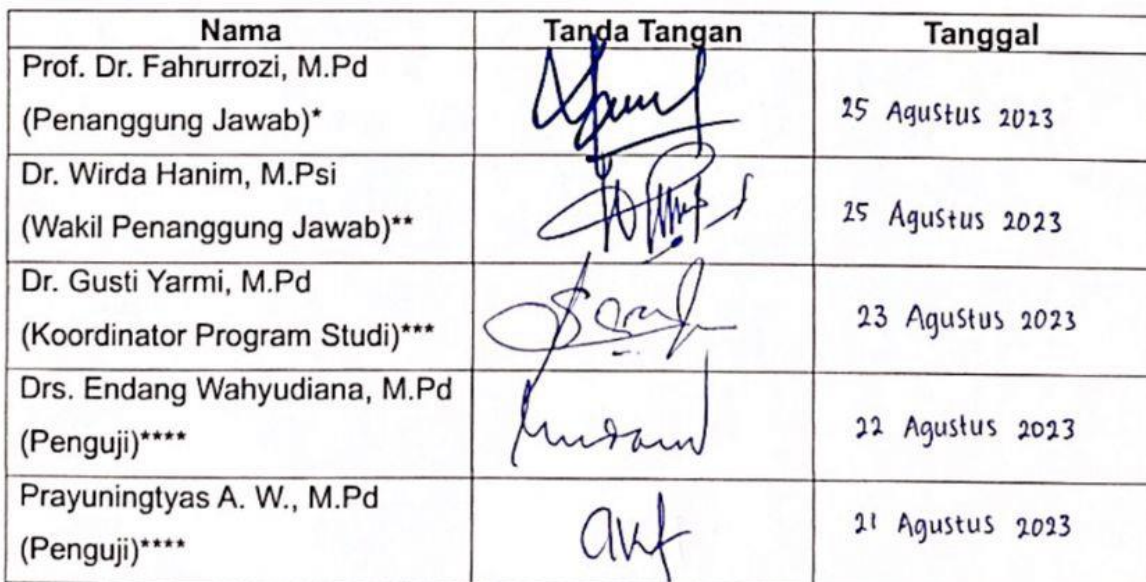 Nama Tanda Tangan Tanggal
Prof. Dr. Fahrurrozi, M.Pd
(Penanggung Jawab)* 25 Agustus 2023
Dr. Wirda Hanim, M.Psi
(Wakil Penanggung Jawab)** 25 Agustus 2023
Dr. Gusti Yarmi, M.Pd
(Koordinator Program Studi)*** 23 Agustus 2023
Drs. Endang Wahyudiana, M.Pd
(Penguji)**** 22 Agustus 2023
Prayuningtyas A. W., M.Pd
(Penguji)**** 21 Agustus 2023